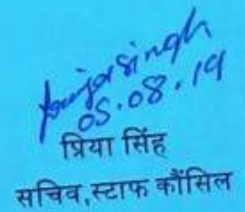 05.08.19
प्रिया सिंह
सचिव,स्टाफ कौंसिल